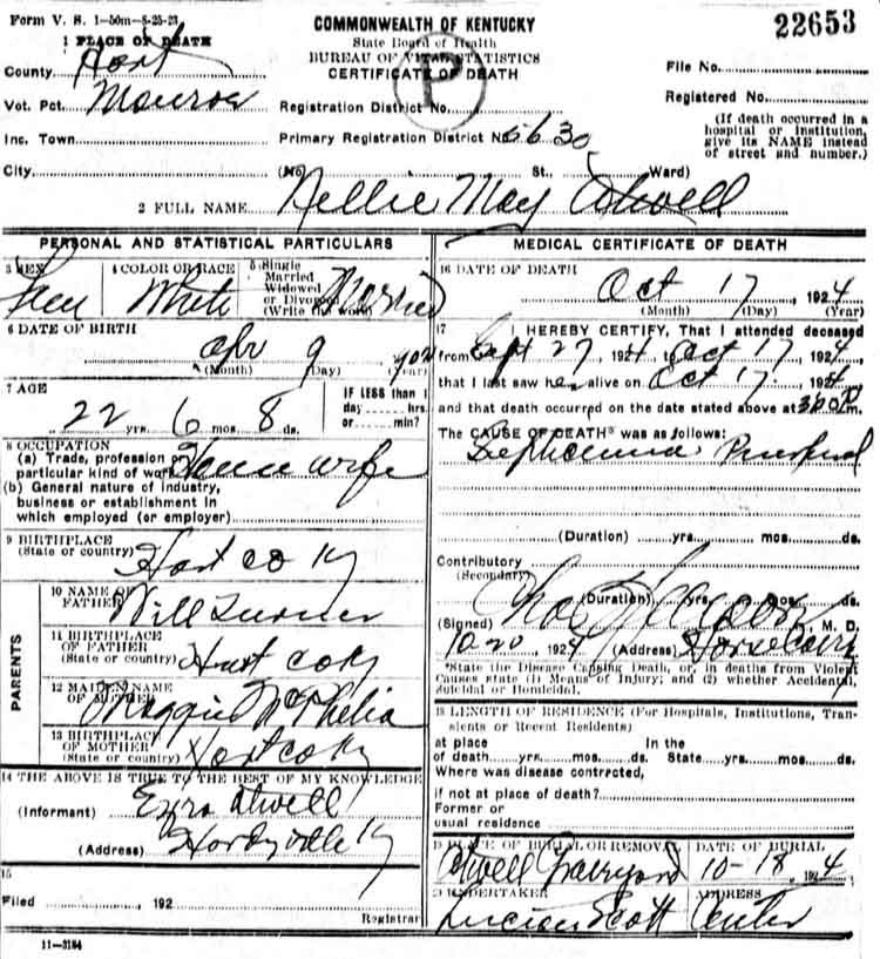 Form V. S. 1—50m—5-25-23
COMMONWEALTH OF KENTUCKY
22653
State Board of Health
BUREAU OF VITAL STATISTICS
CERTIFICATE OF DEATH
P
1 PLACE OF DEATH
County Hart
Vot. Pct. Monroe
Inc. Town
City
Registration District No.
Primary Registration District No. 5630
(No. St., Ward)
File No.
Registered No.
(If death occurred in a
hospital or institution,
give its NAME instead
of street and number.)
2 FULL NAME Nellie May Atwell
PERSONAL AND STATISTICAL PARTICULARS
3 SEX
Fem
4 COLOR OR RACE
White
5 Single
Married
Widowed
or Divorced
(Write the word)
Married
6 DATE OF BIRTH
Apr 9 902
(Month) (Day) (Year)
7 AGE
22 yrs. 6 mos. 8 ds.
IF LESS than 1
day hrs.
or min?
8 OCCUPATION
(a) Trade, profession or
particular kind of work House wife
(b) General nature of industry,
business or establishment in
which employed (or employer)
9 BIRTHPLACE
(State or country) Hart co Ky
PARENTS
10 NAME OF
FATHER Will Turner
11 BIRTHPLACE
OF FATHER
(State or country) Hart co Ky
12 MAIDEN NAME
OF MOTHER Maggie
13 BIRTHPLACE
OF MOTHER
(State or country) Hart co Ky
14 THE ABOVE IS TRUE TO THE BEST OF MY KNOWLEDGE
(Informant) Ezra Atwell
(Address) Hardyville Ky
15
Filed , 192
Registrar
11—3184
MEDICAL CERTIFICATE OF DEATH
16 DATE OF DEATH
Oct 17, 1924
(Month) (Day) (Year)
17 I HEREBY CERTIFY, That I attended deceased
from Sept 27, 1924, to Oct 17, 1924
that I last saw her alive on Oct 17, 1924
and that death occurred on the date stated above at m.
The CAUSE OF DEATH* was as follows:
Septicemia Puerperal
(Duration) yrs. mos. ds.
Contributory
(Secondary)
(Duration) yrs. mos. ds.
(Signed) , M. D.
10 20, 1924 (Address) Horse Cave
*State the Disease Causing Death, or, in deaths from Violent
Causes state (1) Means of Injury; and (2) whether Accidental,
Suicidal or Homicidal.
18 LENGTH OF RESIDENCE (For Hospitals, Institutions, Tran-
sients or Recent Residents)
at place In the
of death yrs. mos. ds. State yrs. mos. ds.
Where was disease contracted,
if not at place of death?
Former or
usual residence
19 PLACE OF BURIAL OR REMOVAL
Atwell Graveyard
DATE OF BURIAL
10-18, 1924
20 UNDERTAKER
Lucian Scott
ADDRESS
Center